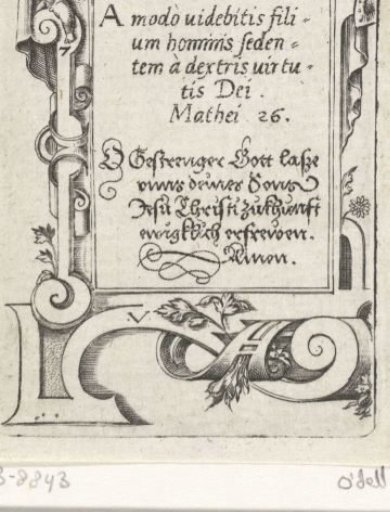 A modo uidebitis fili-
um hominis seden-
tem à dextris uirtu-
tis Dei.
Mathei 26.
O Gestrenger Gott lasse
vnns deines Sons
Jesu Christi zukhunfft
ewigklich erfrewen.
Amen.
7
V
B-8843
O'dell